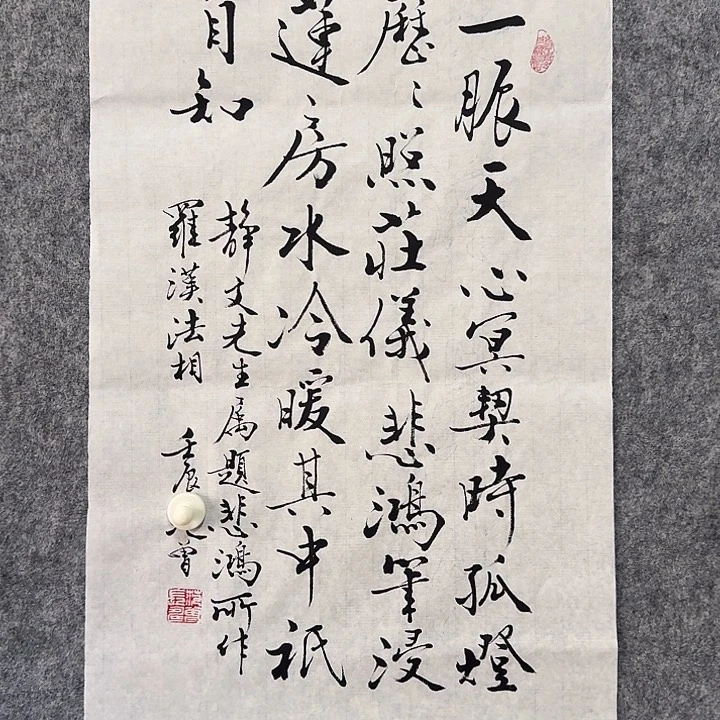 一脈天心冥契時孤燈
歷〻照莊儀悲鴻筆浸
蓮房水冷暖其中祇
自知
靜文先生属題悲鴻所作
羅漢法相
壬辰
曾